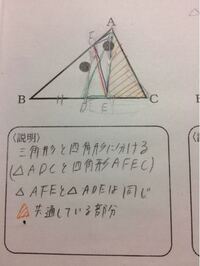 A
F
B
H
D
E
C
〈説明〉
三角形と四角形に分ける
(△ADCと四角形AFEC)
△AFEと△ADEは同じ
共通している部分